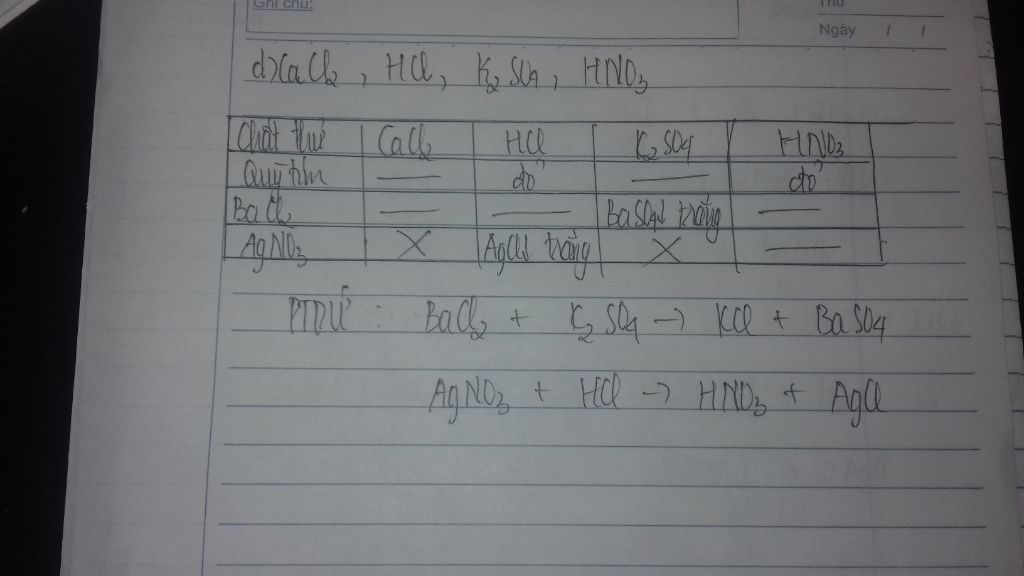 Ghi chú:
Thứ
Ngày / /
d) CaCl2, HCl, K2SO4, HNO3
Chất thử CaCl2 HCl K2SO4 HNO3
Quỳ tím — đỏ — đỏ
BaCl2 — — BaSO4↓ trắng —
AgNO3 X AgCl↓ trắng X —
PTPƯ : BaCl2 + K2SO4 → KCl + BaSO4
AgNO3 + HCl → HNO3 + AgCl